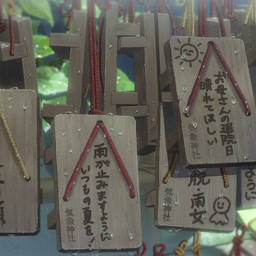 お母さんの退院日
晴れてほしい
気象神社
雨が止みますように
いつもの夏を!
気象神社
脱・雨女
気象神社